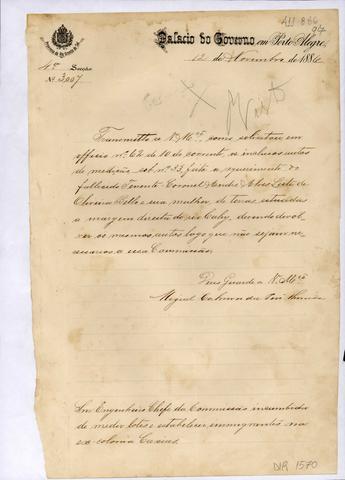 AH 866
94
Palacio do Governo em Porto Alegre,
12 de Novembro de 1886
4ª Secção
N.º 3.007
Visto
Transmitto a V. Mcê, como solicitou em
officio n.º 62 de 10 do corrente, os inclusos autos
de medição sob n.º 33, feita a requerimento do
fallecido Tenente Coronel André Alves Leite de
Oliveira Bello e sua mulher, de terras situadas
a margem direita do rio Cahy, devendo devol-
ver os mesmos autos logo que não sejam ne-
cessarios a essa Commissão.
Deus Guarde a V. Mcê
Miguel Calmon du Pin Almeida
Snr. Engenheiro Chefe da Commissão incumbida
de medir lotes e estabelecer immigrantes na
ex-colonia Caxias.
DIR 1570